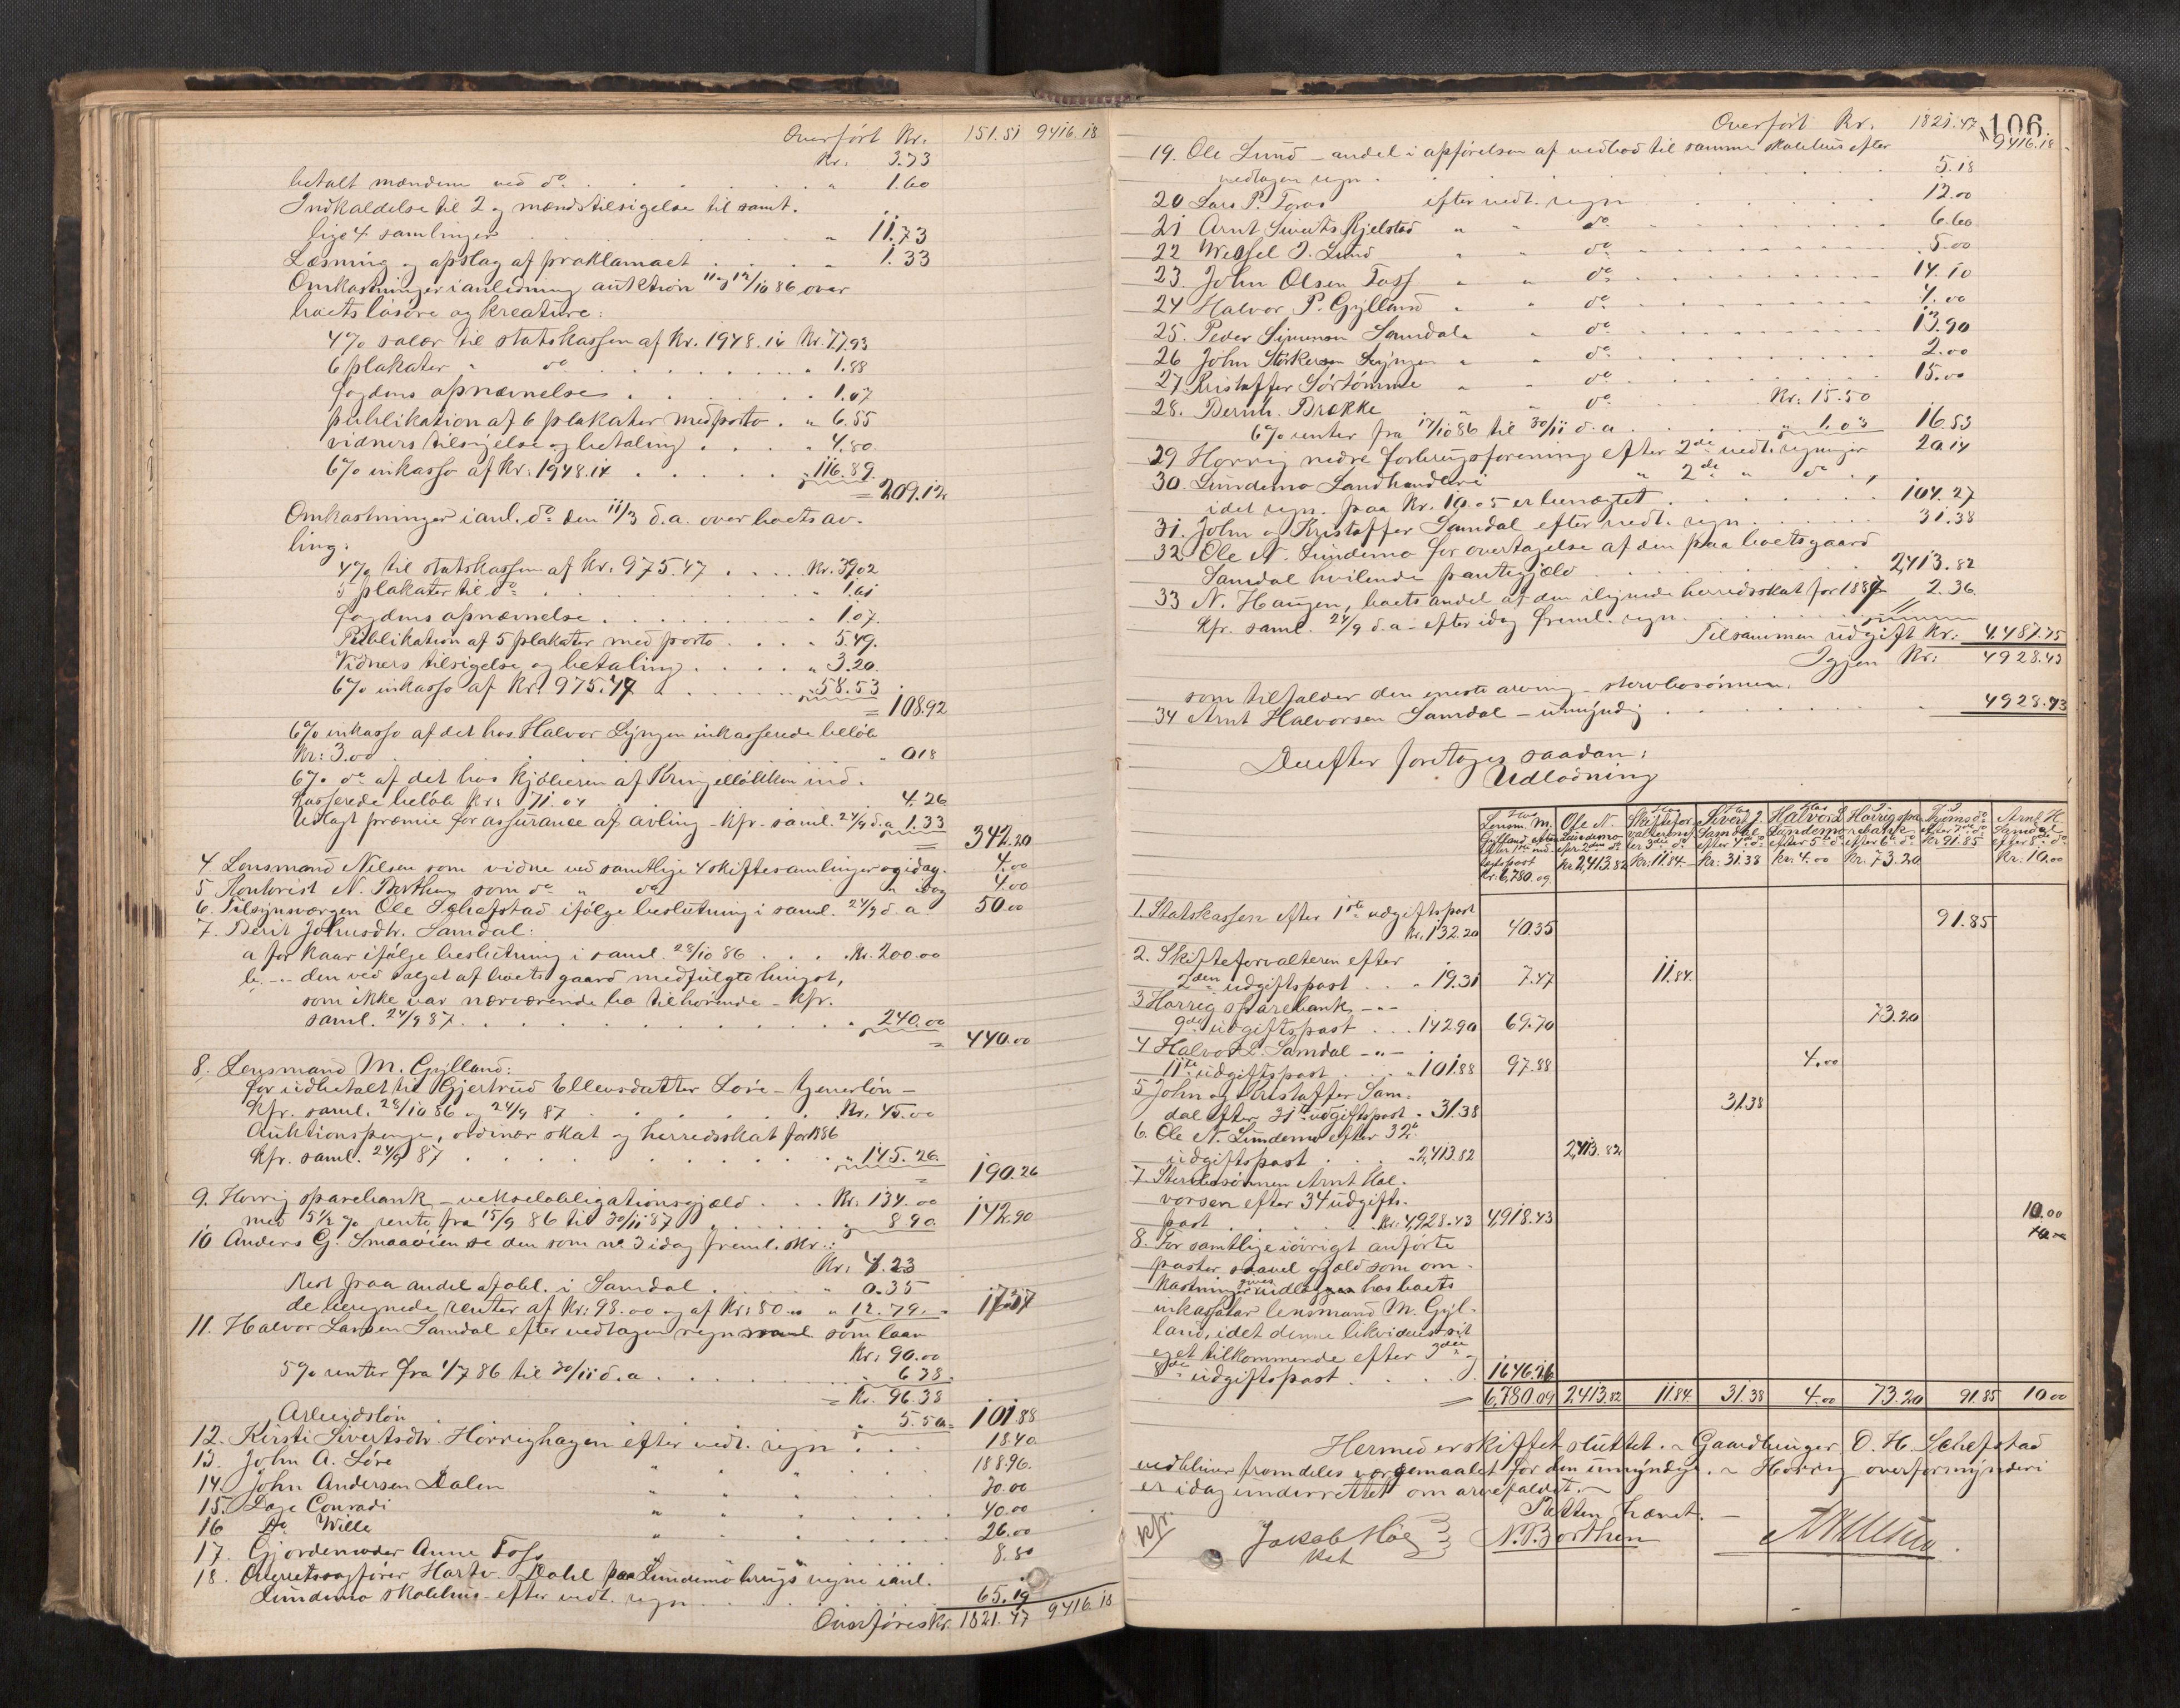 Overført Kr. 151.51 9416.18
Kr. 3.73
betalt mændene ved do " 1.60
Indkaldelse til 2 og mændstilsigelse til samt-
lige 4 samlinger " 11.73
Læsning og opslag af proklamaet " 1.33
Omkostninger i anledning auktion 11 og 12/10 86 over
boets løsøre og kreature:
4% salær til statskassen af Kr. 1948.14 Kr. 77.93
6 plakater " do " 1.88
fogdens opnævnelse " 1.07
publikation af 6 plakater med porto " 6.55
vidners tilsigelse og betaling " 4.80
6% inkasso af Kr. 1948.14 " 116.89
= 209.12
Omkostninger i anl. do den 11/3 d.a. over boets av-
ling:
4% til statskassen af Kr. 975.47 Kr. 39.02
5 plakater til do " 1.61
fogdens opnævnelse " 1.07
Publikation af 5 plakater med porto " 5.49
Vidners tilsigelse og betaling " 3.20
6% inkasso af Kr. 975.47 " 58.53
= 108.92
6% inkasso af det hos Halvor Lyngen inkasserede beløb
Kr: 3.00 " 0.18
6% do af det hos kjøberen af Kringelløkken ind-
kasserede beløb Kr: 71.04 4.26
Udlagt præmie for assurance af avling - kfr. saml. 24/9 d.a. 1.33
= 342.20
4. Lensmand Nilsen som vidne ved samtlige 4 skiftesamlinger og idag. 4.00
5 Kontorist N. Borthen som do " do " idag 4.00
6. Tilsynsværgen Ole Schefstad ifølge beslutning i saml. 24/9 d.a. 50.00
7. Berit Johnsdtr. Samdal:
a for kaar ifølge beslutning i saml. 28/10 86 Kr. 200.00
b. -"- den ved salget af boets gaard medfulgte hingst,
som ikke var nærværende bo tilhørende - kfr.
saml. 24/9 87 " 240.00
= 440.00
8. Lensmand M. Gylland:
for udbetalt til Gjertrud Ellevsdatter Løre - tjenerløn -
Kfr. saml. 28/10 86 og 24/9 87 Kr. 45.00
Auktionspenge, ordinær skat og herredsskat for 1886
Kfr. saml. 24/9 87 " 145.26
= 190.26
9. Horrig sparebank - vekselobligationsgjæld Kr. 134.00
med 5 1/2 % rente fra 15/9 86 til 30/11 87 " 8.90 142.90
10 Anders G. Smaaøien se den som no 3 idag freml. skr.:
Kr. 4.23
Rest paa andel afbet. i Samdal " 0.35
de beregnede renter af Kr: 98.00 og af Kr: 80.00 " 12.79 = 17.37
11. Halvor Larsen Samdal efter vedtagen regn som laan
Kr: 90.00
5% renter fra 1/7 86 til 30/11 d.a. " 6.38
= Kr. 96.38
Arbeidsløn " 5.50 = 101.88
12. Kirsti Sivertsdtr. Horrighagen efter vedt. regn 18.40
13. John A. Løre " " " 188.96
14. John Andersen Dalen " " " 20.00
15. Læge Conradi " " " 40.00
16 Do Wille " " " 26.00
17. Gjordemoder Anne Foss " 8.80
18. Overretssagfører Hartv. Dahl paa Lundemo brugs vegne i anl.
Lundemo skolehus efter vedt. regn 65.19
Overføres Kr. 1821.47 9416.18
Overført Kr. 1821.47 9416.18
106.
19. Ole Lund - andel i opførelsen af vedbod til samme skolehus efter
vedtagen regn. 5.18
20 Lars P. Foros efter vedt. regn 12.00
21 Arnt Siverts Kjelstad " " do 6.60
22 Wessel J. Lund " " do 5.00
23. John Olsen Foss " " do 14.10
24 Halvor P. Gylland " do 4.00
25. Peder Simensen Samdal " do 13.90
26 John Størkersen Lyngen " " do 2.00
27 Kristoffer Sørtømme " " do 15.00
28. Bernh. Brekke " " do Kr: 15.50
6% renter fra 17/10 86 til 30/11 d.a. " 1.03 16.53
29 Horrig nedre forbrugsforening efter 2de vedt. regninger 20.14
30. Lundemo Landhandleri " 2de " do
idet regn. paa Kr. 10.05 er benægtet 104.27
31. John og Kristoffer Samdal efter vedt. regn 31.38
32 Ole N. Lundemo for overtagelse af den paa boets gaard
Samdal hvilende pantegjæld 2,413.82
33 N. Haugen, boets andel af den ilignede herredsskat for 1887 2.36
Kfr. saml. 24/9 d.a. efter idag freml. regn.
Tilsammen udgift Kr: 4,487.75
Igjen Kr: 4928.43
som tilfalder den eneste arving - stervbosønnen.
34 Arnt Halvorsen Samdal - umyndig 4928.43
Derefter foretoges saadan:
Udlodning
Hos Lensm. M. Gylland efter 1ste indtægtspost Kr. 6,780.09
Ole N. Lundemo efter 2den do Kr. 2,413.82
Hos Skifteforvalteren efter 3die do Kr. 11.84
Hos Sivert J. Samdal efter 4de do Kr: 31.38
Hos Halvor L. Lundemo efter 5te do Kr. 4.00
I Horrig sparebank efter 6te do Kr. 73.20
efter 7de do Kr 91.85
Arnt H. Samdal efter 8de do Kr. 10.00
1. Statskassen efter 1ste udgiftspost
Kr. 132.20 40.35 91.85
2. Skifteforvalteren efter
2den udgiftspost " 19.31 7.47 11.84
3 Horrig sparebank -"-
9de udgiftspost 142.90 69.70 73.20
4 Halvor L. Samdal -"-
11te udgiftspost " 101.88 97.88 4.00
5 John og Kristoffer Sam-
dal efter 31te udgiftspost " 31.38 31.38
6. Ole N. Lundemo efter 32te
udgiftspost " 2,413.82 2,413.82
7 Stervbosønnen Arnt Hal-
vorsen efter 34 udgifts-
post Kr. 4,928.43 4,918.43 10.00
8. For samtlige iøvrigt anførte
poster saavel gjæld som om-
kostninger gives udlæg hos boets
inkassator lensmand M. Gyl-
land, idet denne likviderer sit
eget tilkommende efter 3die og
8de udgiftspost 1646.26
= 6,780.09 2,413.82 11.84 31.38 4.00 73.20 91.85 10.00
Hermed er skiftet sluttet. - Gaardbruger O. H. Schefstad
vedbliver fremdeles værgemaalet for den umyndige. - Horrig overformynderi
er idag underrettet om arvefaldet. -
Retten hævet. -
Kfr. Jakob Hog N. Borthen